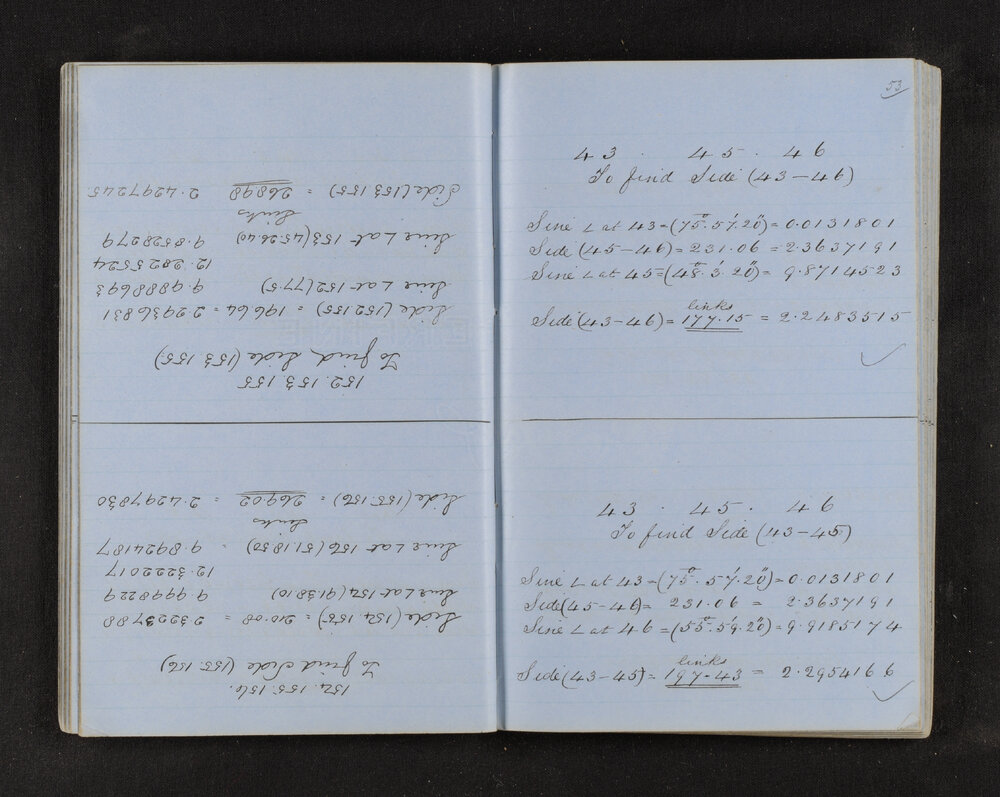 154. 155. 156.
To find Side (155. 156)
Side (154. 155) = 210.08 = 2.3223788
Sine ∠ at 154 (91.38.10) 9.9998229
12.3222017
Sine ∠ at 156 (51.18.50) = 9.8924187
links
Side (155. 156) = 269.02 = 2.4297830
152. 153. 155
To find Side (153. 155)
Side (152. 155) = 196.64 = 2.2936831
Sine ∠ at 152 (77.5) 9.9888693
12.2825524
Sine ∠ at 153 (45.26.40) 9.8528279
links
Side (153. 155) = 268.98 2.4297245
53
43 . 45 . 46
To find Side (43–46)
Sine ∠ at 43 = (75°. 57'. 20") = 0.0131801
Side (45–46) = 231.06 = 2.3637191
Sine ∠ at 45 = (48°. 3'. 20") = 9.8714523
links
Side (43–46) = 177.15 = 2.2483515
43 . 45 . 46
To find Side (43–45)
Sine ∠ at 43 = (75°. 57'. 20") = 0.0131801
Side (45–46) = 231.06 = 2.3637191
Sine ∠ at 46 = (55°. 59'. 20") = 9.9185174
links
Side (43–45) = 197.43 = 2.2954166